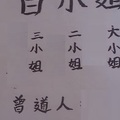 白小姐
大小姐
二小姐
三小姐
曾道人